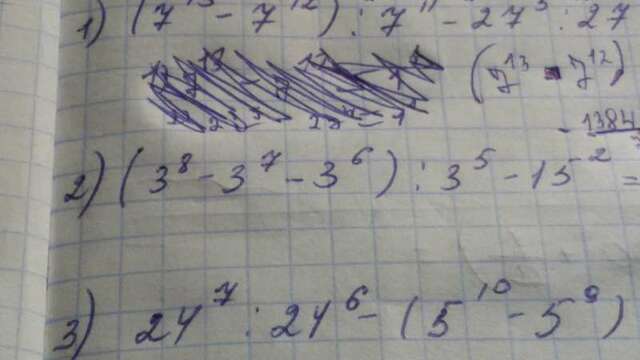 1) (7¹³ - 7¹²) : 7¹¹ - 27³ : 27
(7¹³ - 7¹²)
- 1384
2) (3⁸ - 3⁷ - 3⁶) : 3⁵ - 15² =
3) 24⁷ : 24⁶ - (5¹⁰ - 5⁹)